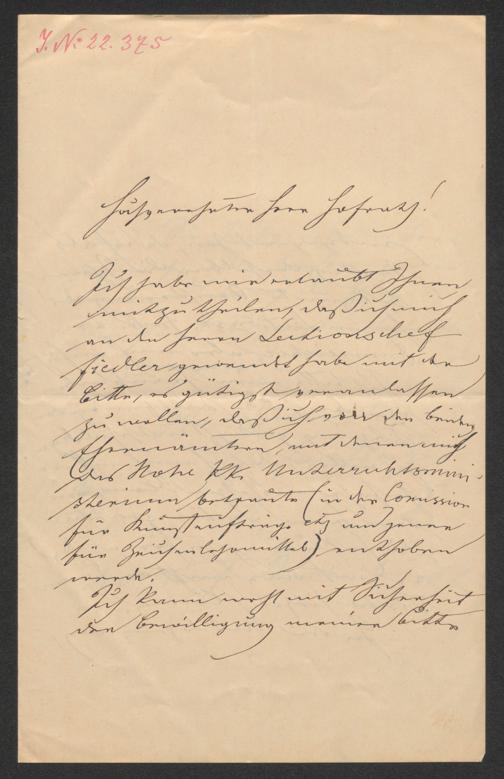 J. № 22.375
Hochverehrter Herr Hofrath!
Ich habe mir erlaubt Ihnen
mitzutheilen, daß ich mich
an den Herrn Sectionschef
Fiedler gewendet habe mit der
Bitte, es gütigst veranlassen
zu wollen, daß ich von den beiden
Ehrenämtern, mit denen mich
das Hohe kk. Unterrichtsmini-
sterium betraute (in der Comission
für Kunstaufträge etz und jener
für Zeichenlehrmittel) enthoben
werde.
Ich kann wohl mit Sicherheit
der Bewilligung meiner Bitte